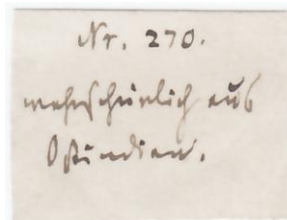 Nr. 270.
wahrscheinlich aus
Ostindien.